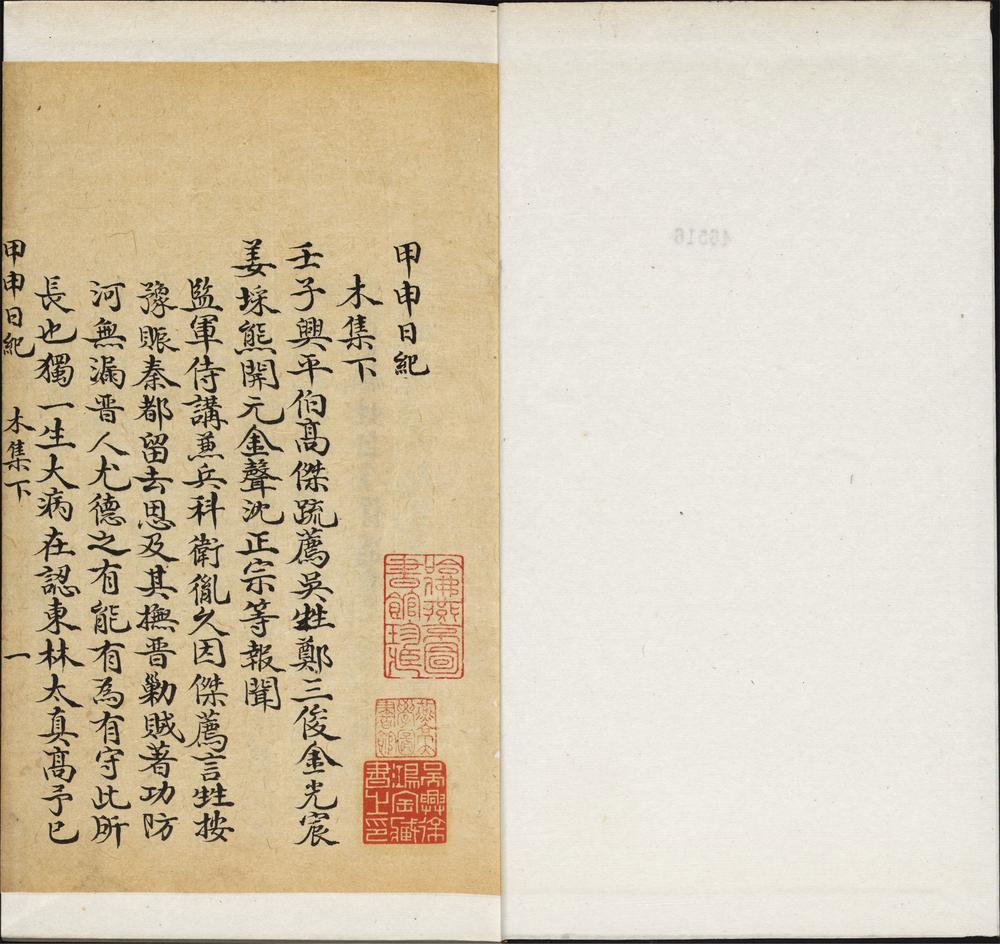 甲申日紀
木集下
壬子興平伯高傑疏薦吳甡鄭三俊金光宸
姜埰熊開元金聲沈正宗等報聞
監軍侍講兼兵科衛胤文因傑薦言甡按
豫賑秦都留去思及其撫晉勦賊著功防
河無漏晉人尤德之有能有為有守此所
長也獨一生大病在認東林太真高予已
甲申日紀 木集下 一
哈佛燕京圖
書館珍藏
吳興徐
鴻寶藏
書之印
46516